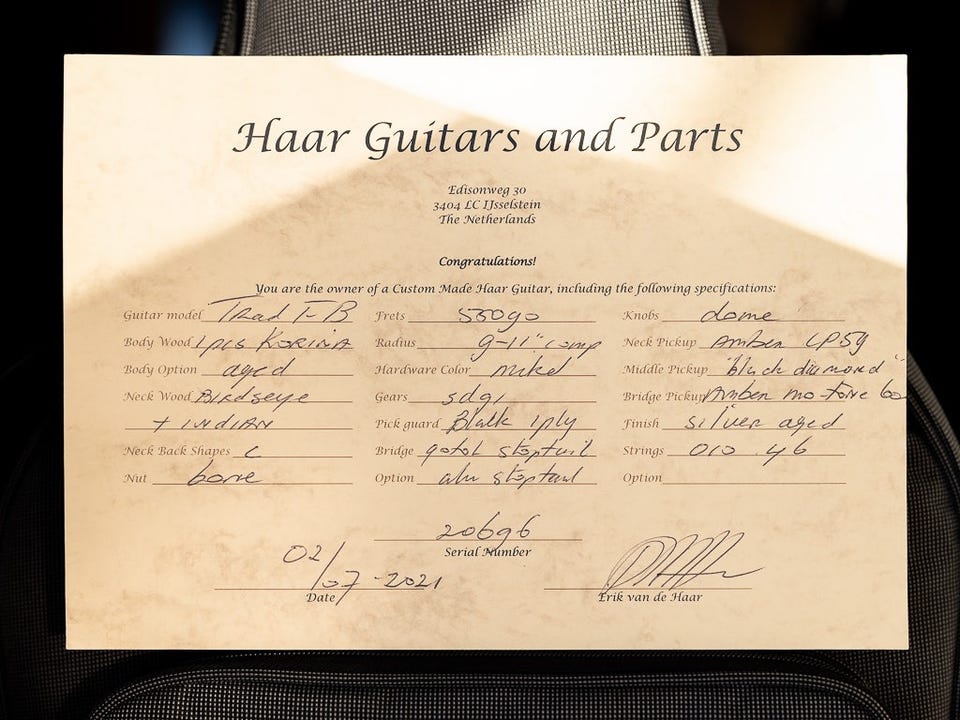 Haar Guitars and Parts
Edisonweg 30
3404 LC IJsselstein
The Netherlands
Congratulations!
You are the owner of a Custom Made Haar Guitar, including the following specifications:
Guitar model Trad T-B
Body Wood 1pcs KORINA
Body Option aged
Neck Wood Birdseye
+ INDIAN
Neck Back Shapes C
Nut bone
Frets 55090
Radius 9-11" comp
Hardware Color nikel
Gears sdgi
Pick guard Black 1ply
Bridge gotoh stoptail
Option alu stoptail
Knobs dome
Neck Pickup Amber LP59
Middle Pickup "black diamond"
Bridge Pickup Amber mo-tone
Finish silver aged
Strings 010 . 46
Option
20696
Serial Number
02/07-2021
Date
Erik van de Haar